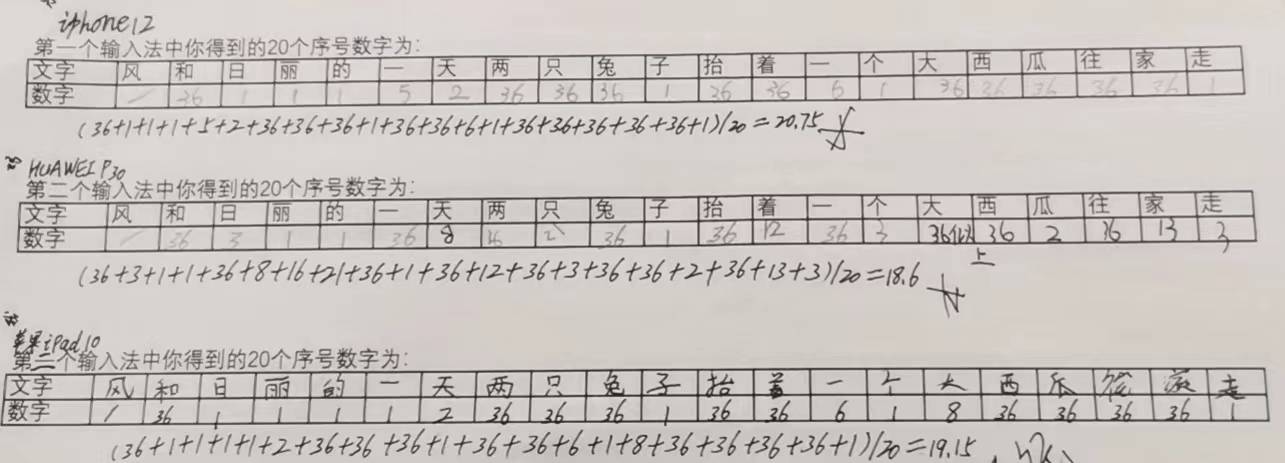 iphone12
第一个输入法中你得到的20个序号数字为:
文字 风 和 日 丽 的 一 天 两 只 兔 子 抬 着 一 个 大 西 瓜 往 家 走
数字 / 36 1 1 1 5 2 36 36 36 1 36 36 6 1 36 36 36 36 36 1
(36+1+1+1+5+2+36+36+36+1+36+36+6+1+36+36+36+36+36+1)/20=20.75
HUAWEI P30
第二个输入法中你得到的20个序号数字为:
文字 风 和 日 丽 的 一 天 两 只 兔 子 抬 着 一 个 大 西 瓜 往 家 走
数字 / 36 3 1 1 36 8 16 21 36 1 36 12 36 3 36以上 36 2 36 13 3
(36+3+1+1+36+8+16+21+36+1+36+12+36+3+36+36+2+36+13+3)/20=18.6
苹果iPad10
第三个输入法中你得到的20个序号数字为:
文字 风 和 日 丽 的 一 天 两 只 兔 子 抬 着 一 个 大 西 瓜 往 家 走
数字 / 36 1 1 1 1 2 36 36 36 1 36 36 6 1 8 36 36 36 36 1
(36+1+1+1+1+2+36+36+36+1+36+36+6+1+8+36+36+36+36+1)/20=19.15